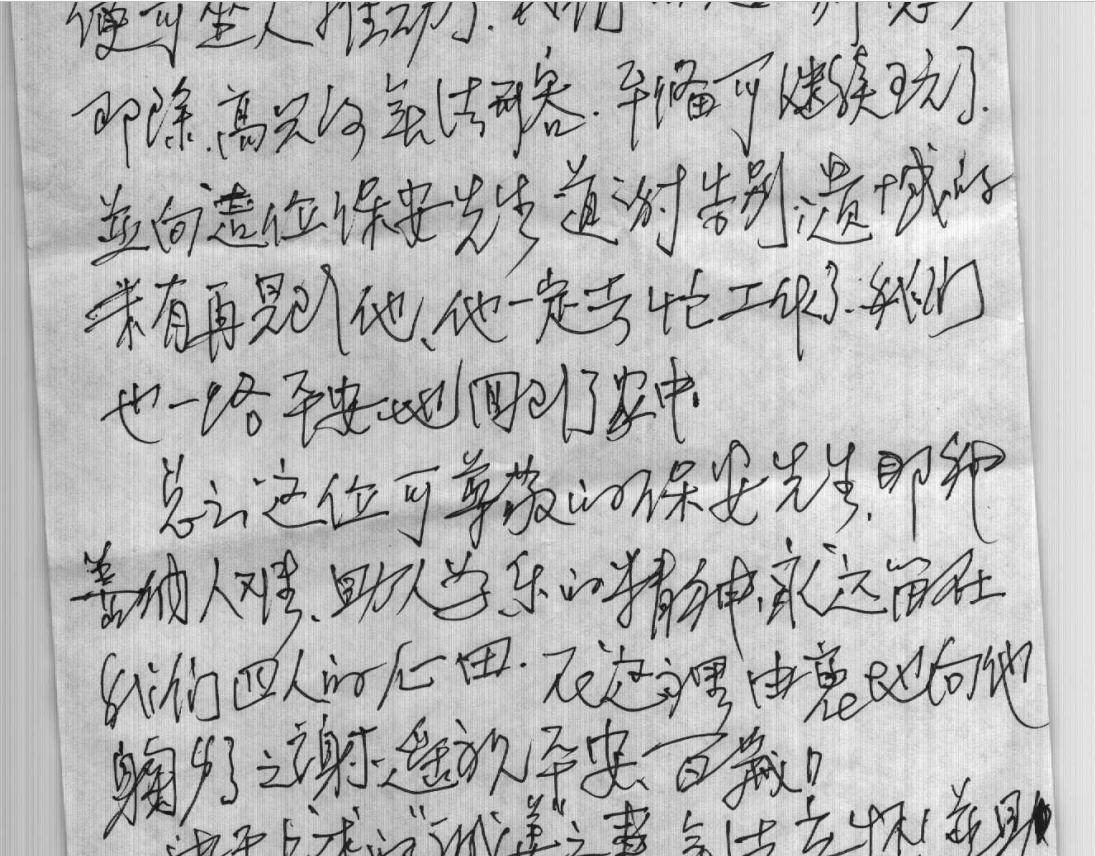 便可坐人推动了.我们
即除,高兴的无法形容.平修可继续玩了.
並向这位保安先生道谢告别,遗憾的
未有再见到他、他一定去忙工作了.我们
也一路平安地回到了家中.
总之,这位可尊敬的保安先生,那种
善纳人难、助人为乐的精神,永远留在
我们四人的心田.在这里由衷地向他
鞠躬了之谢.遥祝平安、百岁!